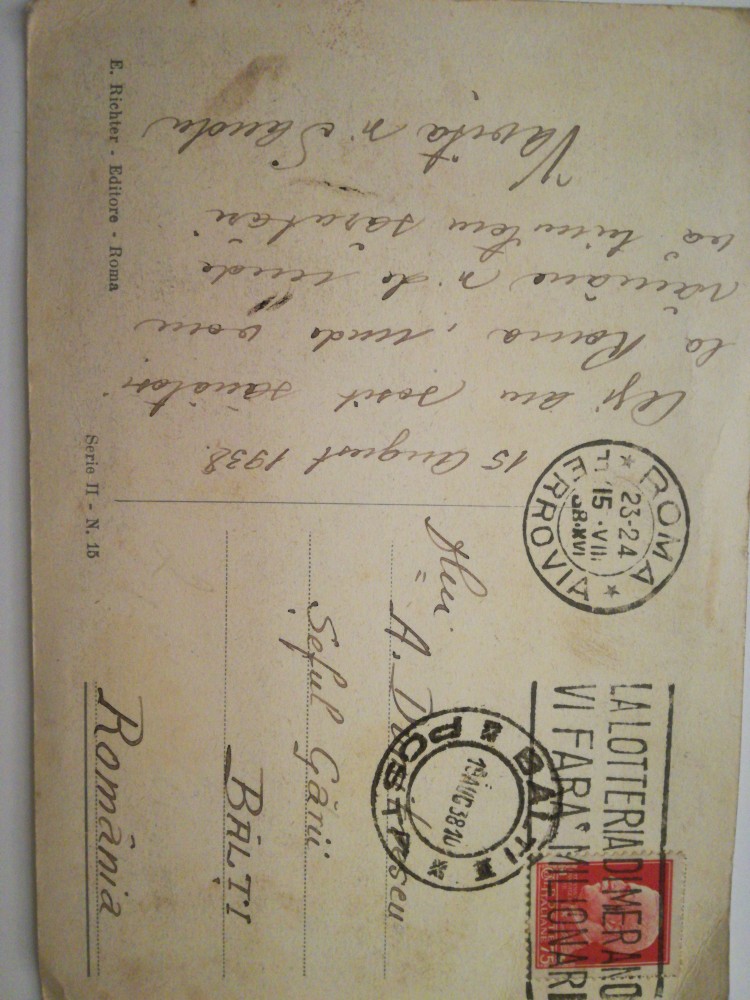 15 August 1938.
Azi am sosit sănătoși
la Roma, unde vom
rămâne și de unde
vă trimitem sărutări
și Sandu
E. Richter - Editore - Roma
Serie II - N. 15
ROMA FERROVIA
23-24
15 . VIII
38.XVI
LA LOTTERIA DI MERANO
VI FARA' MILIONARI
BĂLȚI
POȘTA
19 AUG 38 10
POSTE ITALIANE 75
A.
Șeful Gării
BĂLȚI
România